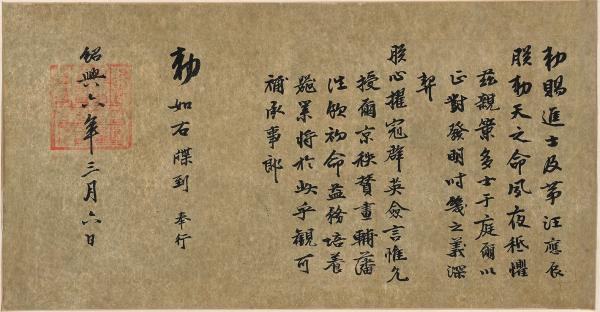 勅賜進士及第汪應辰
朕勅天之命夙夜祗懼
茲親策多士于庭爾以
正對發明時幾之義深
契
朕心擢冠群英僉言惟允
授爾京秩贊畫輔藩
往欽初命益務培養
業將於此乎觀可
補承事郎
勅如右牒到奉行
紹興六年三月六日